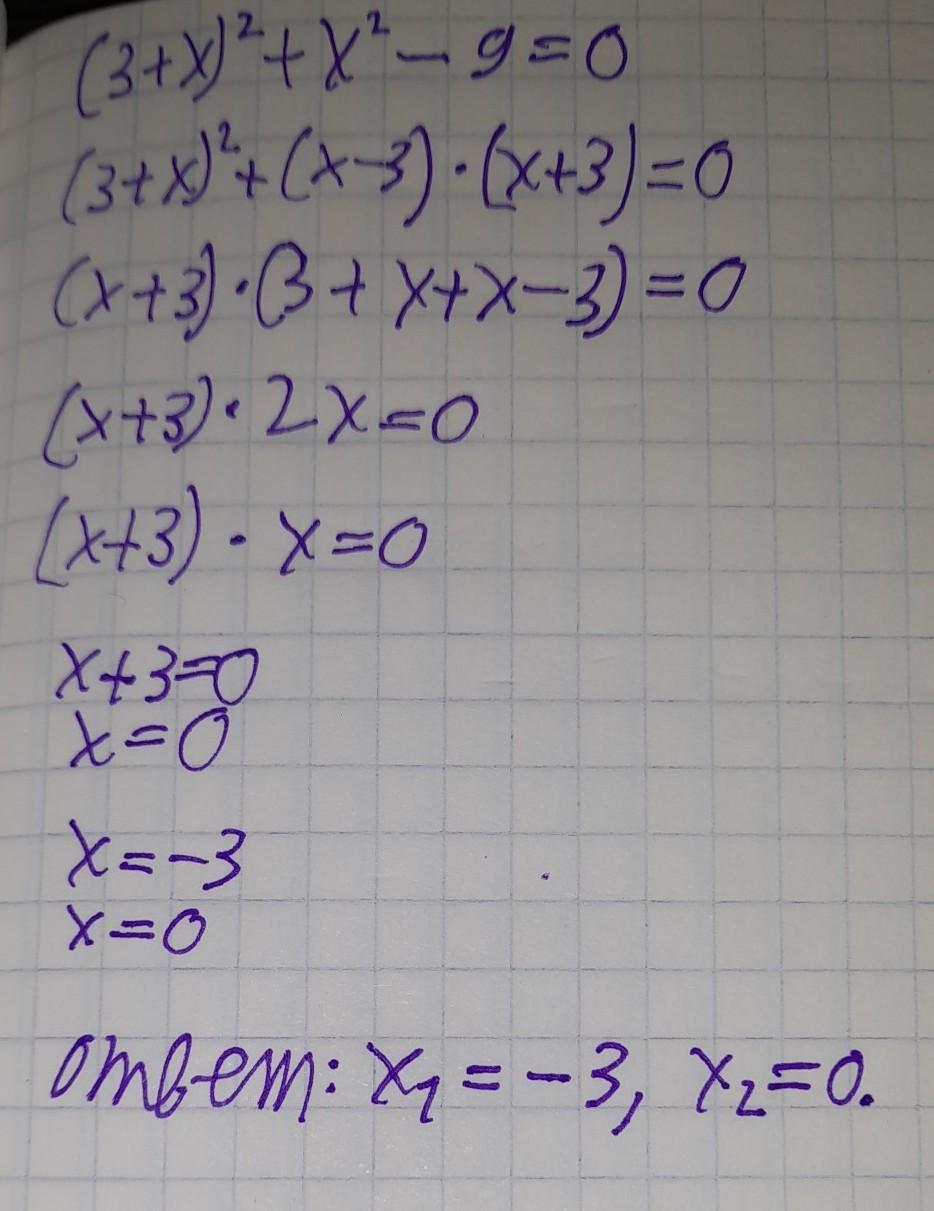 (3+x)²+x²-9=0
(3+x)²+(x-3)·(x+3)=0
(x+3)·(3+x+x-3)=0
(x+3)·2x=0
(x+3)·x=0
x+3=0
x=0
x=-3
x=0
ответ: x₁=-3, x₂=0.